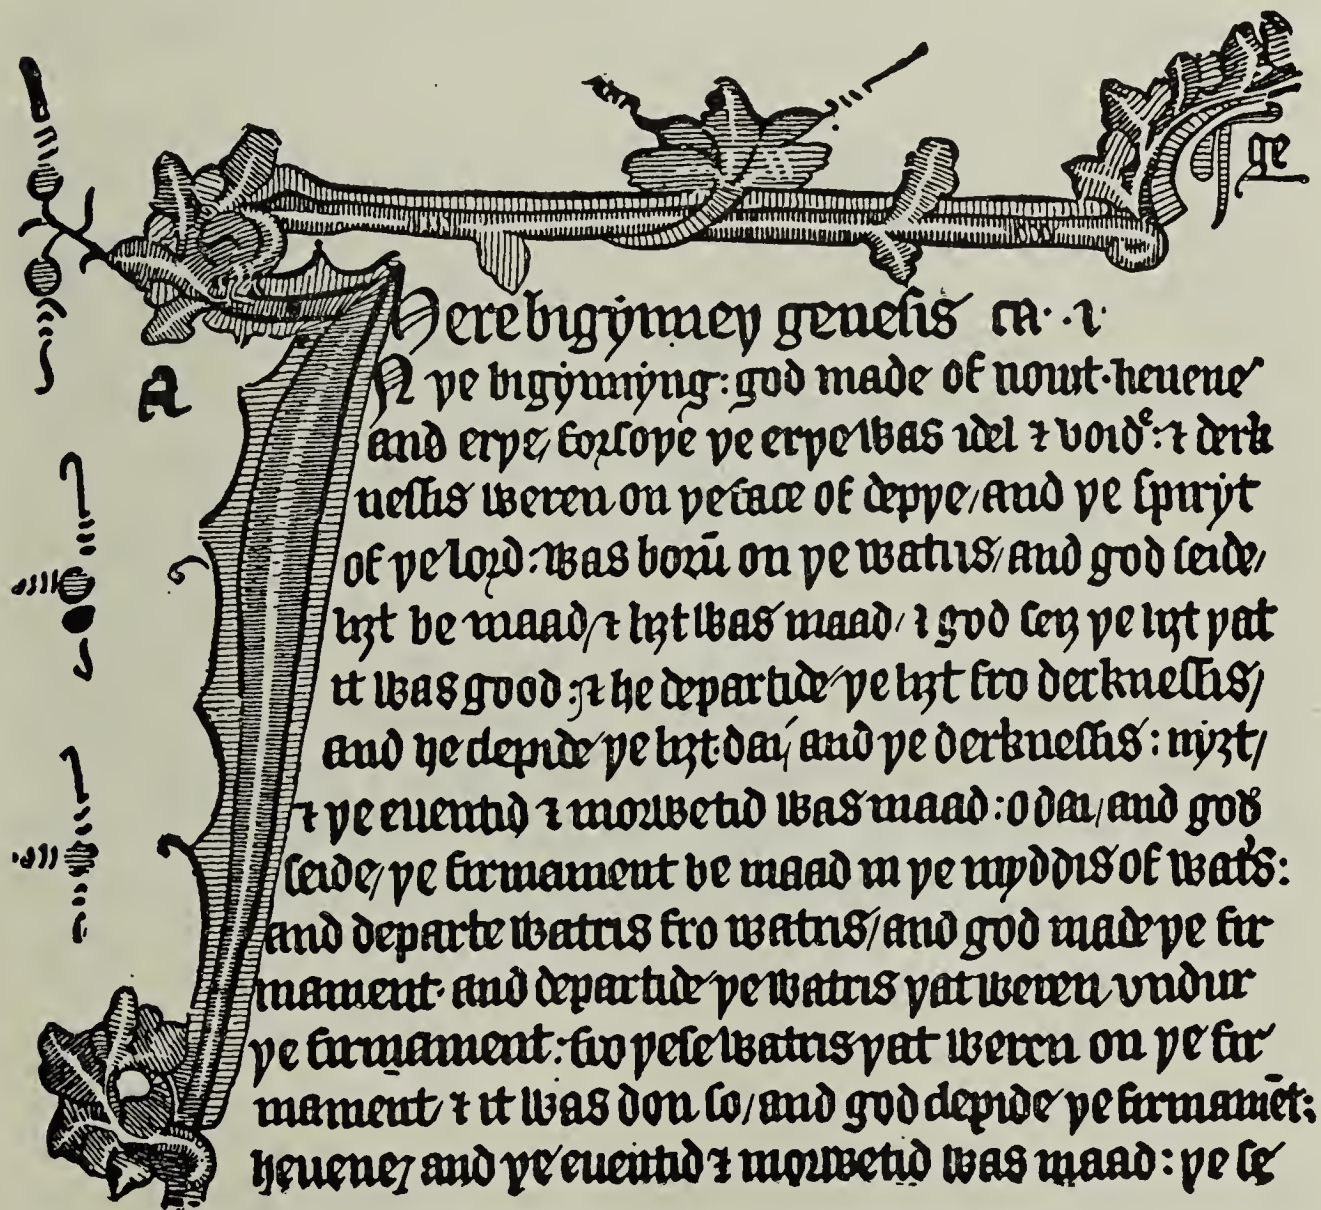 ge
Here bigynney genesis ca. .i.
A
N ye bigynnyng: god made of nouȝt. heuene
and erye, forsoye ye erye was idel ⁊ voide: ⁊ derk
nessis weren on ye face of depye, and ye spiryt
of ye lord. was borū on ye watris, and god seide,
liȝt be maad, ⁊ liȝt was maad, ⁊ god seiȝ ye liȝt yat
it was good: ⁊ he departide ye liȝt fro derknessis,
and he clepide ye liȝt. dai, and ye derknessis: nyȝt,
⁊ ye euentid ⁊ morwetid was maad: o dai, and god
seide, ye firmament be maad in ye myddis of wat's:
and departe watris fro watris, and god made ye fir
mament. and departide ye watris yat weren vndur
ye firmament: fro yese watris yat weren on ye fir
mament, ⁊ it was don so, and god clepide ye firmamēt:
heuene, and ye euentid ⁊ morwetid was maad: ye se